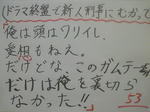 (ドラマ終盤で新人刑事にむかって)
「俺は頭はワリイし、
愛想もねえ。
だけどな、このガムテープ
だけは俺を裏切ら
なかった!!」
53